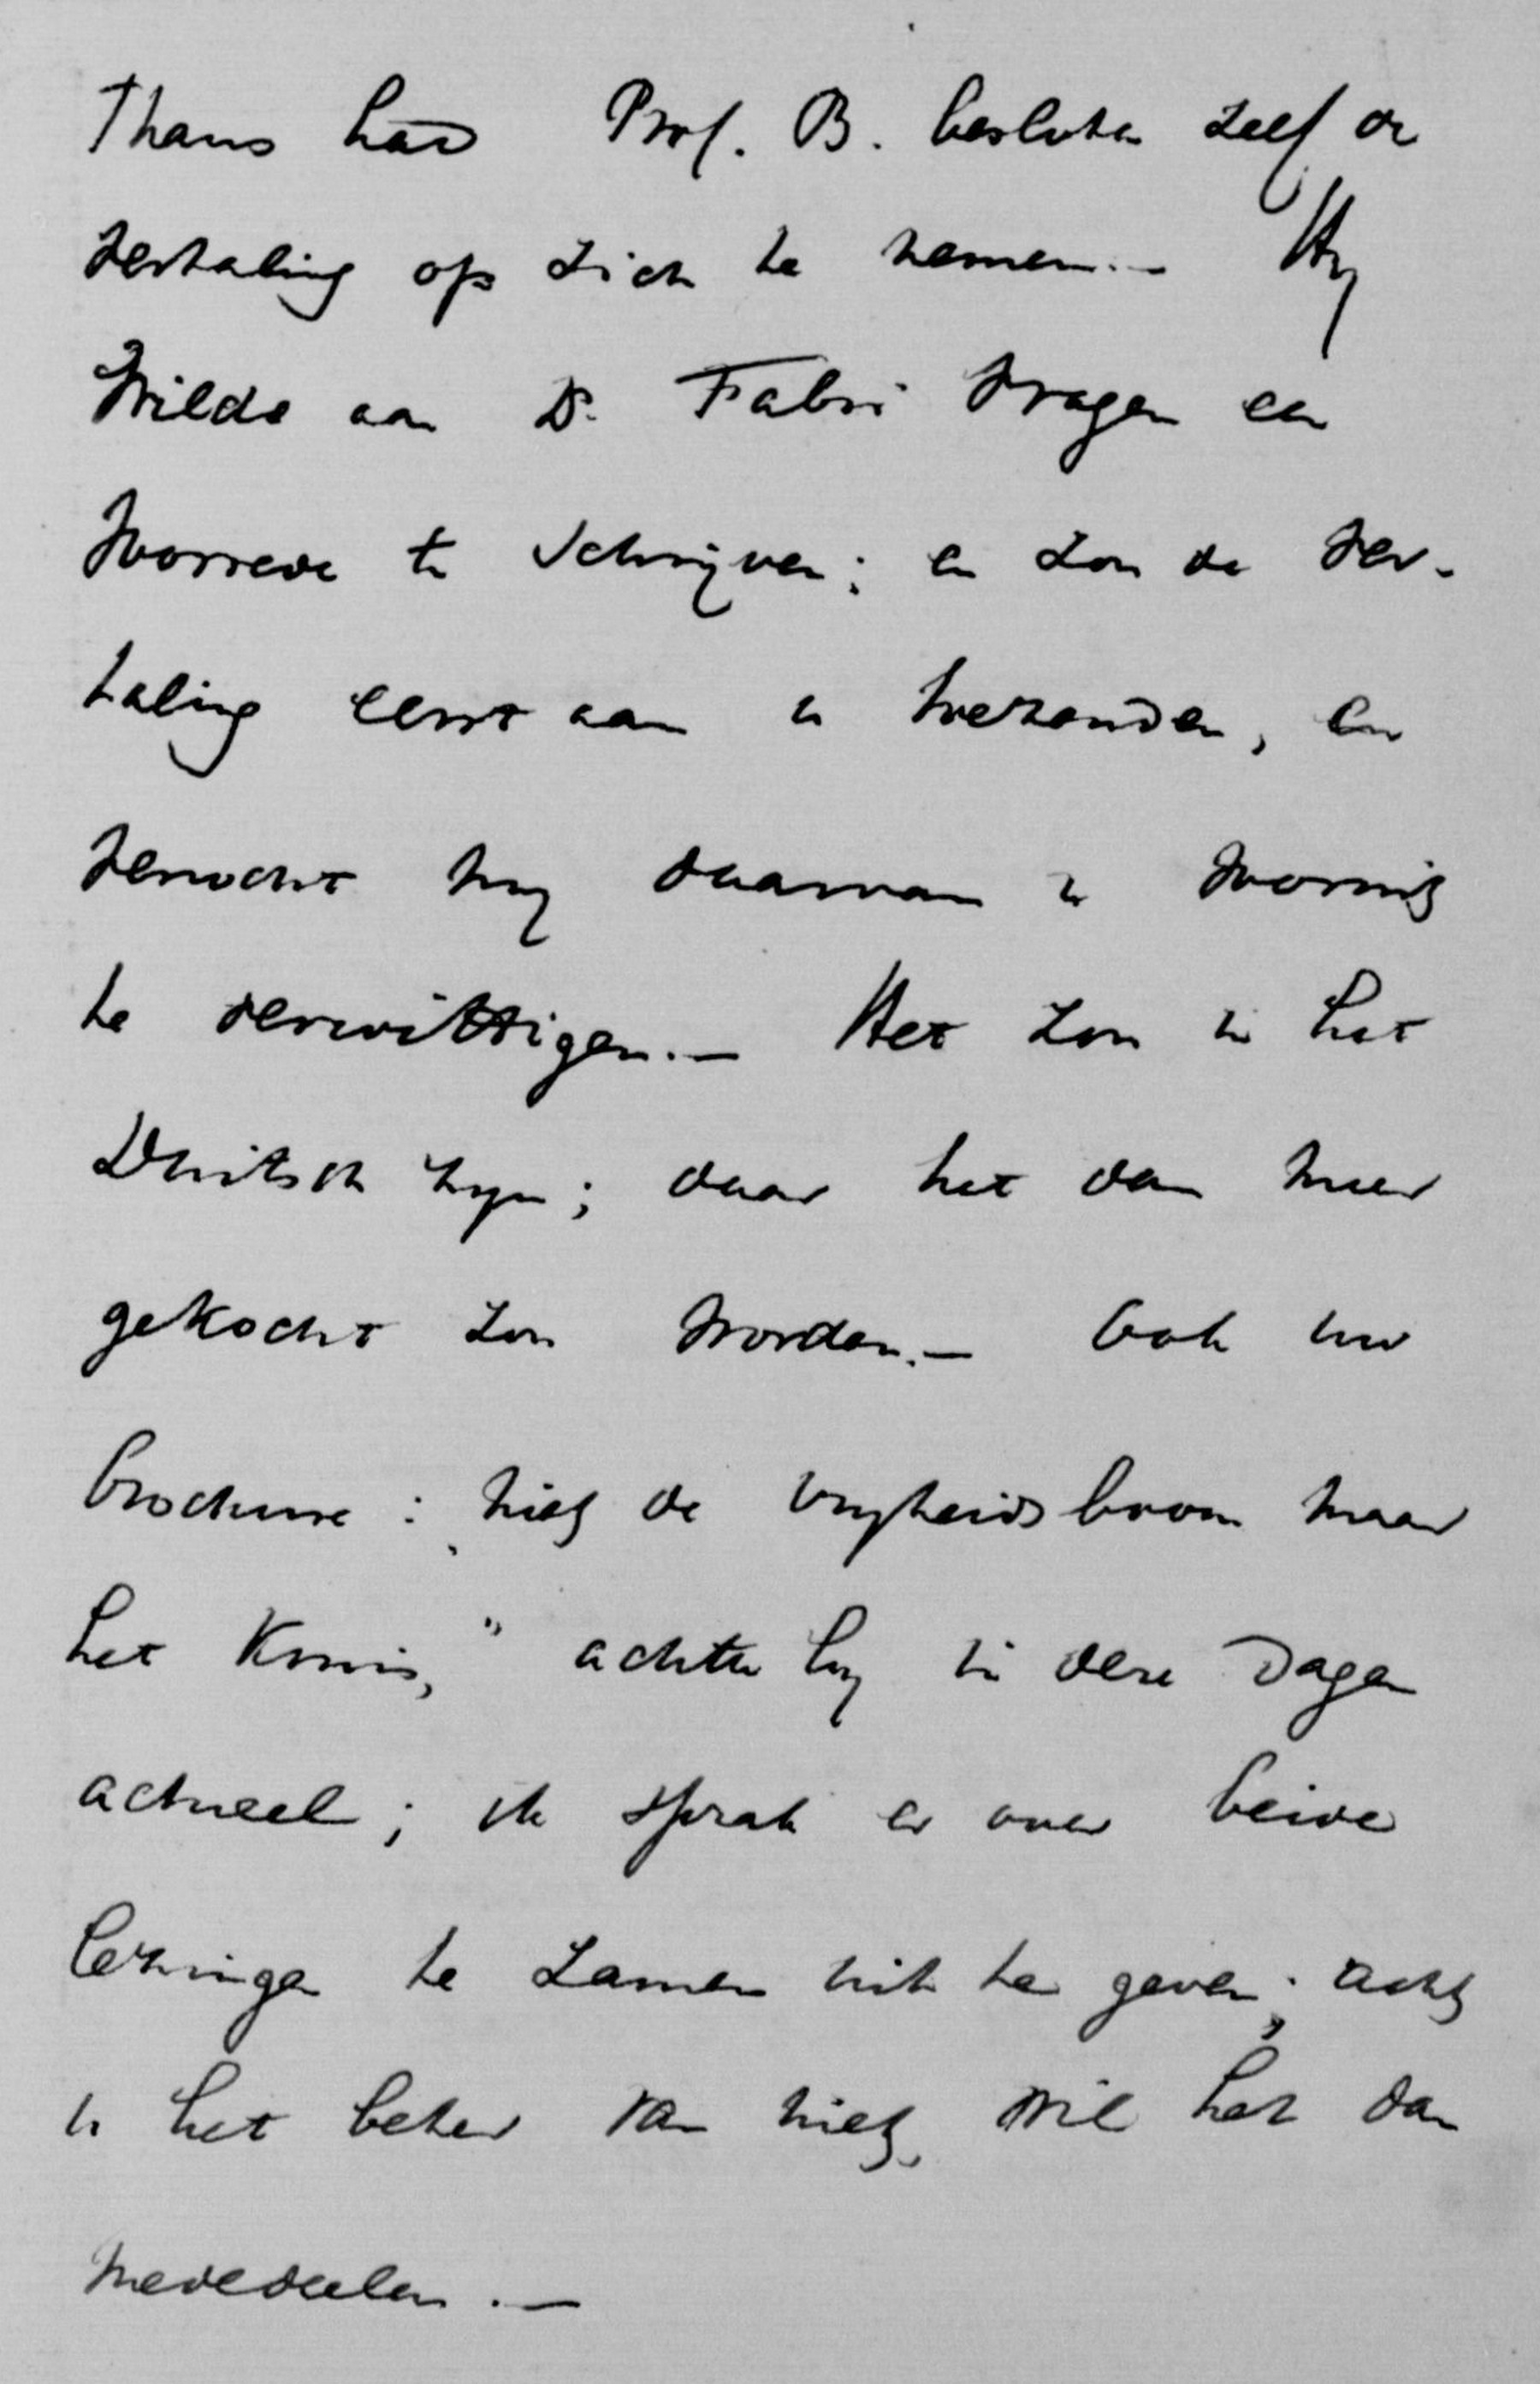 Thans had Prof. B. besloten zelf de
vertaling op zich te nemen.— Hy
Wilde aan Dr. Fabri vragen een
voorrede te schrijven; en zou de ver-
taling eerst aan u toezenden, en
verzocht my daarvan u vooruit
te verwittigen.— Het zou in het
Duitsch zyn; daar het dan meer
gekocht zou worden.— Ook uw
brochure: „niet de vryheidsboom maar
het Kruis," achtte hy in deze dagen
actueel; ik sprak er over beide
lezingen te zamen uit te geven; acht
u het beter van niet, wil het dan
mededeelen.—